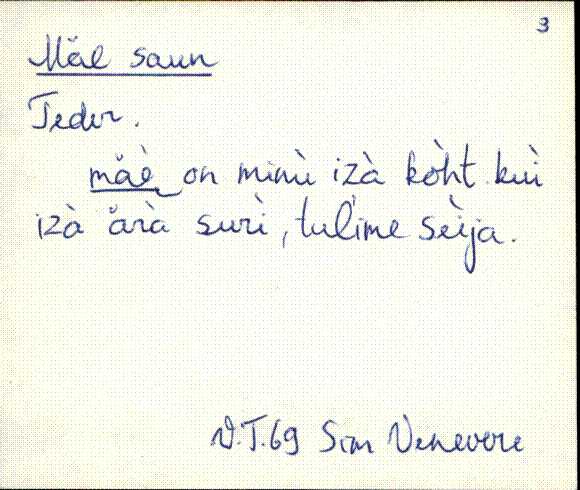 3
Mäe saun
Teder.
mäè on minù izà kòht kuì
izà ärà surì, tulime sèija.
V.T.69 Sim Venevere